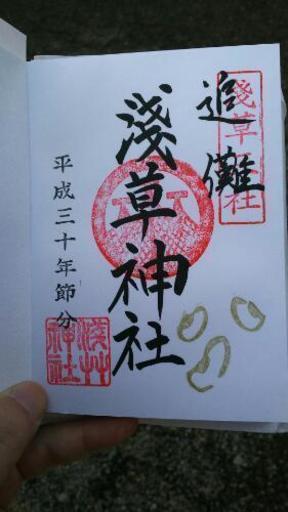 追儺
淺草神社
淺草神社
平成三十年節分
淺草神社